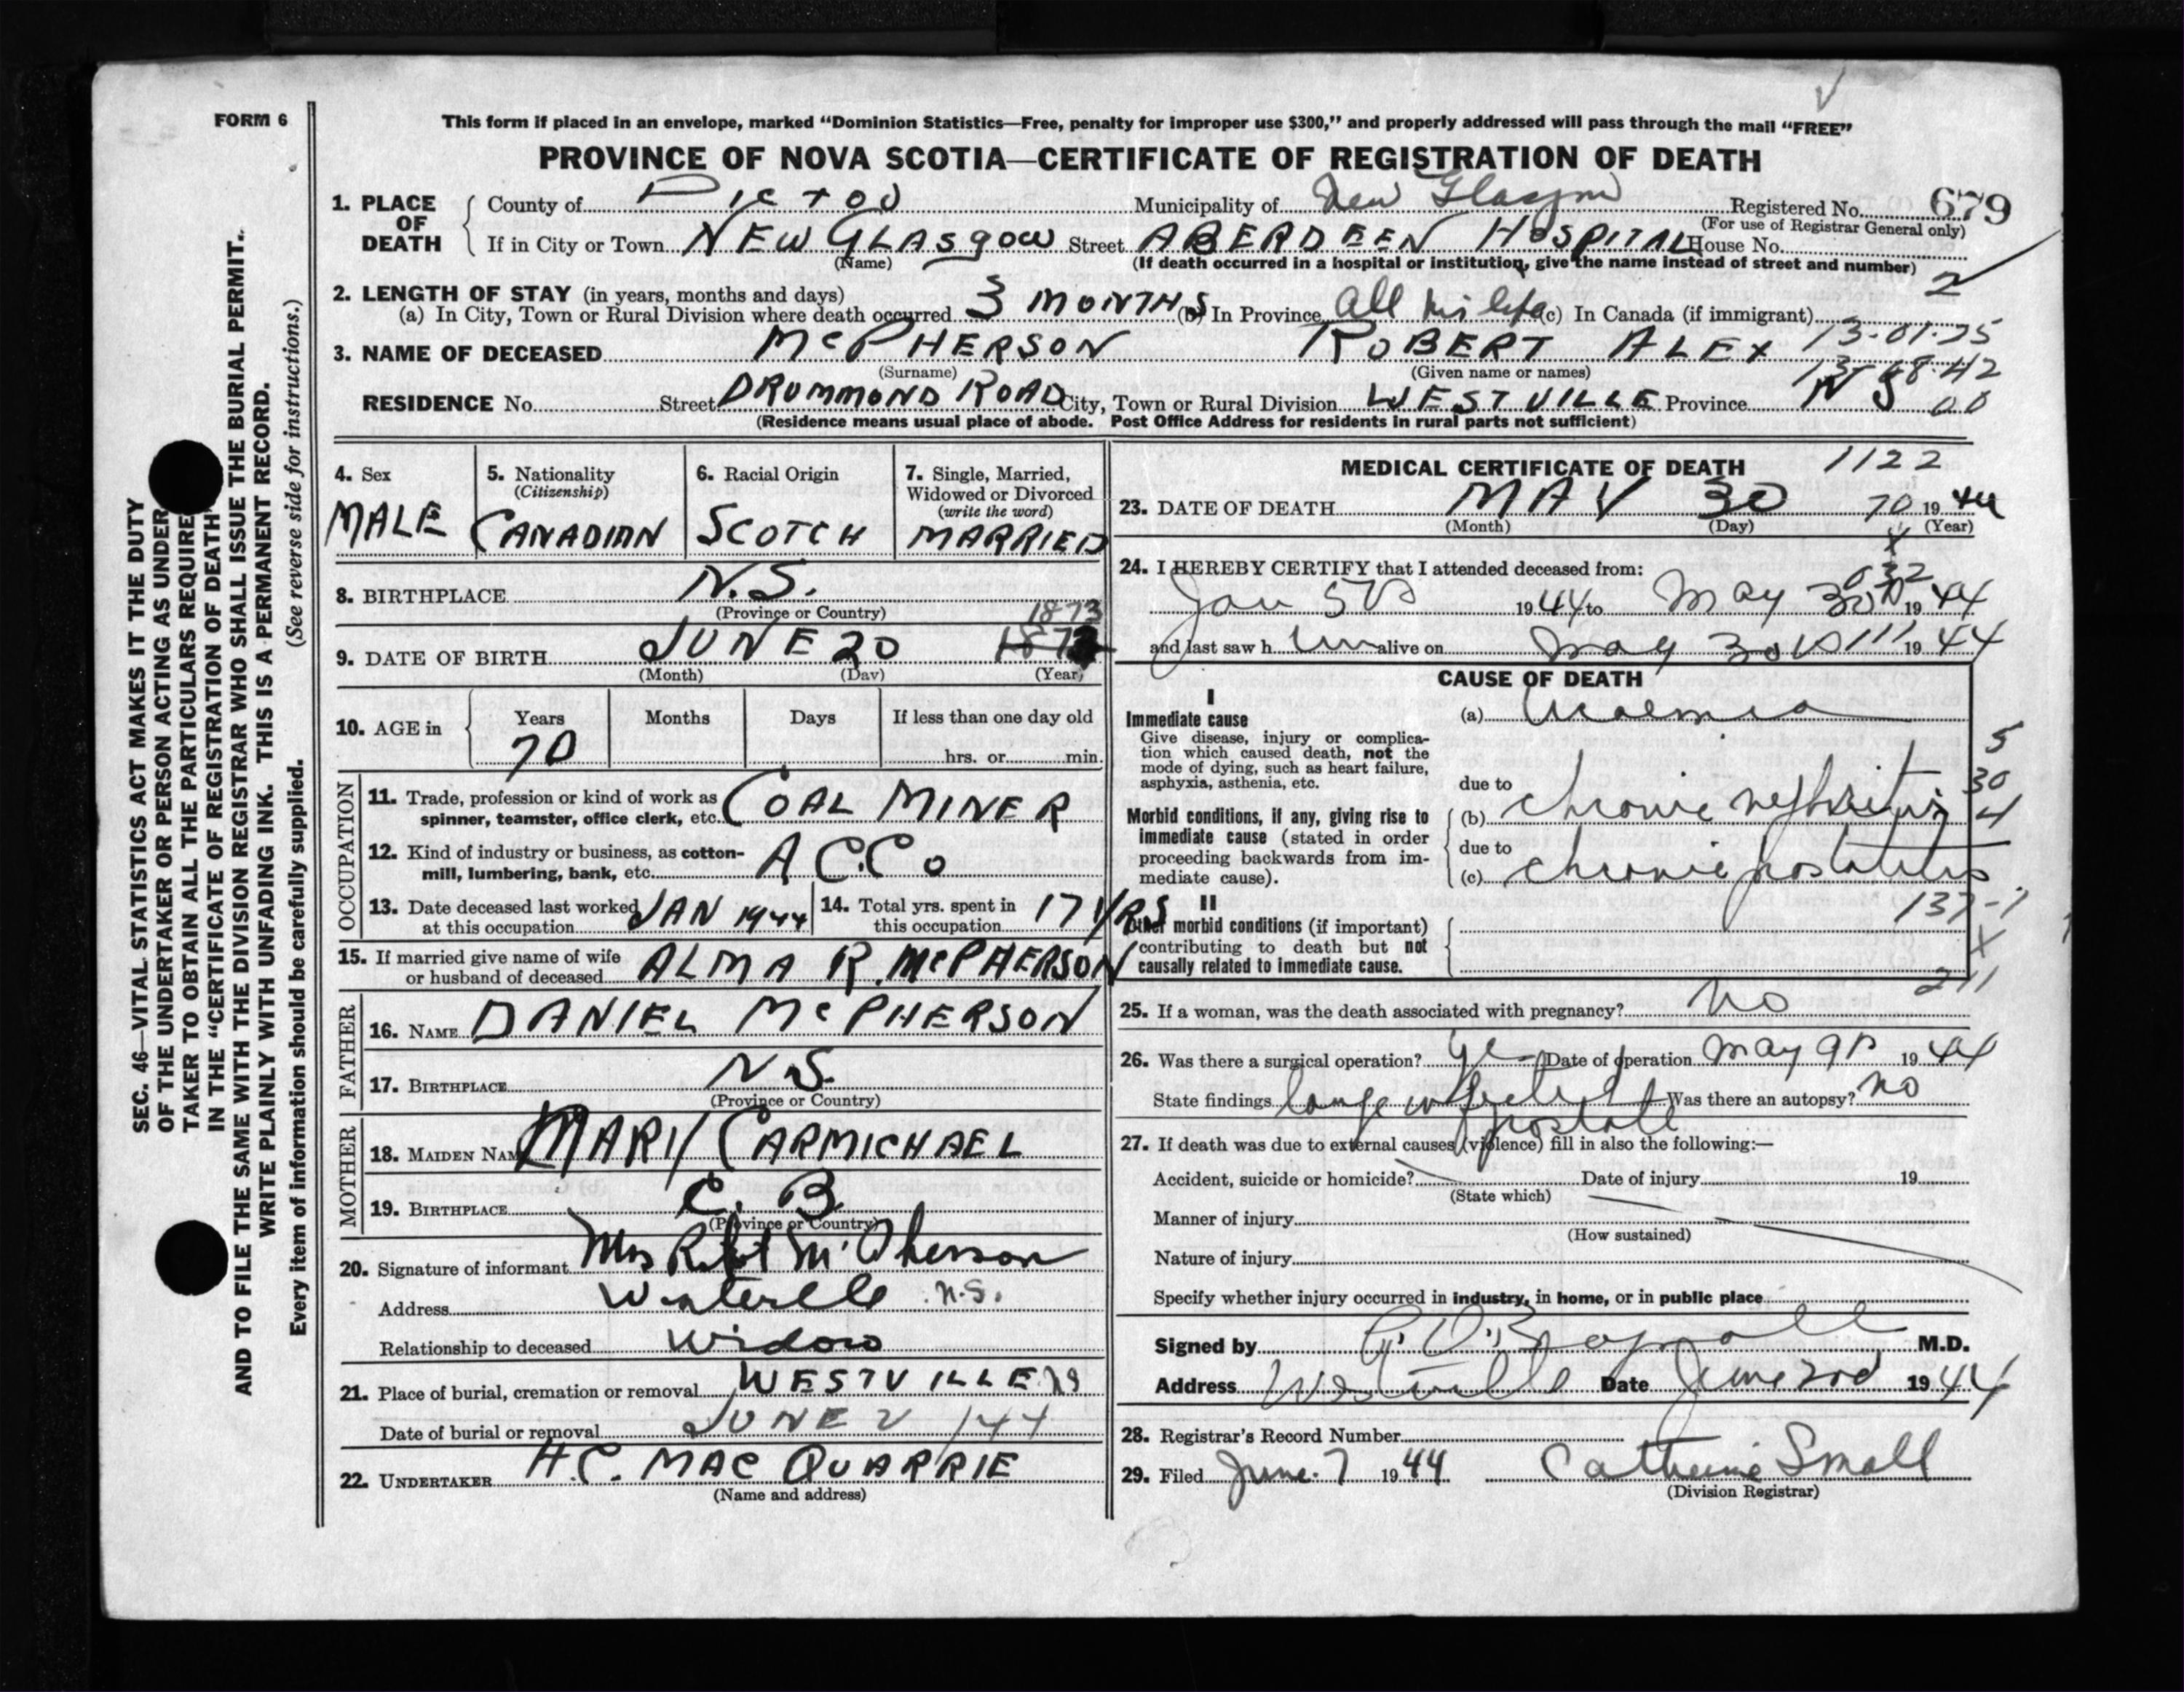 FORM 6
This form if placed in an envelope, marked "Dominion Statistics—Free, penalty for improper use $300," and properly addressed will pass through the mail "FREE"
PROVINCE OF NOVA SCOTIA—CERTIFICATE OF REGISTRATION OF DEATH
1. PLACE OF DEATH County of PICTOU Municipality of New Glasgow Registered No. 679
(For use of Registrar General only)
If in City or Town NEW GLASGOW Street ABERDEEN HOSPITAL House No.
(Name) (If death occurred in a hospital or institution, give the name instead of street and number)
2. LENGTH OF STAY (in years, months and days) 2
(a) In City, Town or Rural Division where death occurred 3 MONTHS (b) In Province All his life (c) In Canada (if immigrant)
3. NAME OF DECEASED McPHERSON ROBERT ALEX 13-01-25
(Surname) (Given name or names)
RESIDENCE No. Street DRUMMOND ROAD City, Town or Rural Division WESTVILLE Province N S 00
(Residence means usual place of abode. Post Office Address for residents in rural parts not sufficient)
4. Sex MALE
5. Nationality (Citizenship) CANADIAN
6. Racial Origin SCOTCH
7. Single, Married, Widowed or Divorced (write the word) MARRIED
8. BIRTHPLACE N.S.
(Province or Country)
1873
9. DATE OF BIRTH JUNE 20
(Month) (Day) (Year)
10. AGE in Years Months Days If less than one day old
70 hrs. or min.
OCCUPATION
11. Trade, profession or kind of work as spinner, teamster, office clerk, etc. COAL MINER
12. Kind of industry or business, as cotton-mill, lumbering, bank, etc. A C. Co
13. Date deceased last worked at this occupation JAN 1944
14. Total yrs. spent in this occupation 17 YRS
15. If married give name of wife or husband of deceased ALMA R. McPHERSON
FATHER
16. NAME DANIEL McPHERSON
17. BIRTHPLACE N.S.
(Province or Country)
MOTHER
18. MAIDEN NAME MARY CARMICHAEL
19. BIRTHPLACE C. B.
(Province or Country)
20. Signature of informant Mrs Robt McPherson
Address Westville N.S.
Relationship to deceased Widow
21. Place of burial, cremation or removal WESTVILLE NS
Date of burial or removal JUNE 2 /44
22. UNDERTAKER H.C. MAC QUARRIE
(Name and address)
MEDICAL CERTIFICATE OF DEATH 1122
23. DATE OF DEATH MAY 30 70 1944
(Month) (Day) (Year)
24. I HEREBY CERTIFY that I attended deceased from:
Jan 5th 1944 to May 30th 1944
and last saw h im alive on May 30th 1944
CAUSE OF DEATH
I
Immediate cause (a) Uraemia
Give disease, injury or complication which caused death, not the mode of dying, such as heart failure, asphyxia, asthenia, etc.
5
30
4
due to
Morbid conditions, if any, giving rise to immediate cause (stated in order proceeding backwards from immediate cause).
(b) chronic nephritis
due to
(c) chronic prostatitis
II
137-1
Other morbid conditions (if important) contributing to death but not causally related to immediate cause.
X
211
25. If a woman, was the death associated with pregnancy? No
26. Was there a surgical operation? Yes Date of operation May 9th 1944
State findings large infected prostate Was there an autopsy? No
27. If death was due to external causes (violence) fill in also the following:—
Accident, suicide or homicide? Date of injury 19
(State which)
Manner of injury
(How sustained)
Nature of injury
Specify whether injury occurred in industry, in home, or in public place
Signed by M.D.
Address Westville Date June 2nd 1944
28. Registrar's Record Number
29. Filed June 7 1944 Catherine Small
(Division Registrar)
SEC. 46—VITAL STATISTICS ACT MAKES IT THE DUTY
OF THE UNDERTAKER OR PERSON ACTING AS UNDER
TAKER TO OBTAIN ALL THE PARTICULARS REQUIRE
IN THE "CERTIFICATE OF REGISTRATION OF DEATH"
AND TO FILE THE SAME WITH THE DIVISION REGISTRAR WHO SHALL ISSUE THE BURIAL PERMIT.
WRITE PLAINLY WITH UNFADING INK. THIS IS A PERMANENT RECORD.
Every item of information should be carefully supplied. (See reverse side for instructions.)